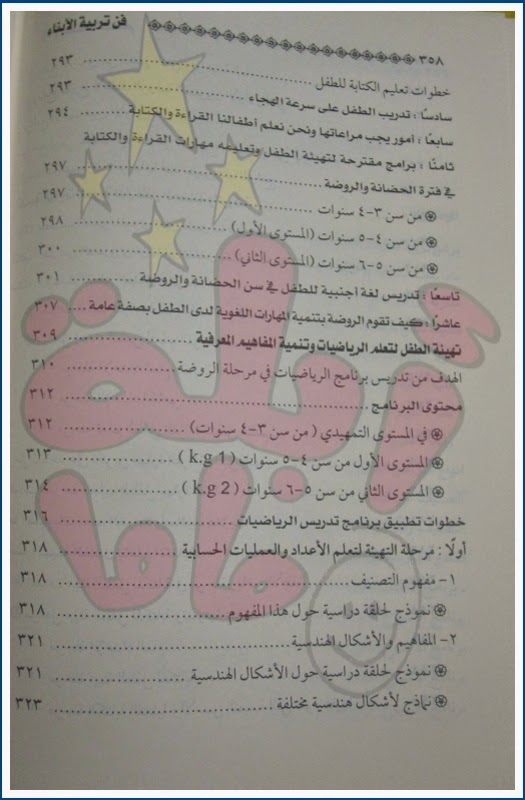 ٣٥٨ فن تربية الأبناء
خطوات تعليم الكتابة للطفل ٢٩٣
سادسًا : تدريب الطفل على سرعة الهجاء ٢٩٣
سابعًا : أمور يجب مراعاتها ونحن نعلم أطفالنا القراءة والكتابة ٢٩٤
ثامنًا : برامج مقترحة لتهيئة الطفل وتعليمه مهارات القراءة والكتابة
في فترة الحضانة والروضة ٢٩٧
من سن ٣-٤ سنوات ٢٩٧
من سن ٤-٥ سنوات (المستوى الأول) ٢٩٨
من سن ٥-٦ سنوات (المستوى الثاني) ٣٠٠
تاسعًا : تدريس لغة اجنبية للطفل في سن الحضانة والروضة ٣٠١
عاشرًا : كيف تقوم الروضة بتنمية المهارات اللغوية لدى الطفل بصفة عامة ٣٠٧
تهيئة الطفل لتعلم الرياضيات وتنمية المفاهيم المعرفية ٣٠٩
الهدف من تدريس برنامج الرياضيات في مرحلة الروضة ٣١٠
محتوى البرنامج ٣١٢
في المستوى التمهيدي ( من سن ٣-٤ سنوات) ٣١٢
المستوى الأول من سن ٤-٥ سنوات ( k.g 1 ) ٣١٣
المستوى الثاني من سن ٥-٦ سنوات ( k.g 2 ) ٣١٤
خطوات تطبيق برنامج تدريس الرياضيات ٣١٦
أولًا : مرحلة التهيئة لتعلم الأعداد والعمليات الحسابية ٣١٨
١- مفهوم التصنيف ٣١٨
نموذج لحلقة دراسية حول هذا المفهوم ٣١٨
٢- المفاهيم والأشكال الهندسية ٣٢١
نموذج لحلقة دراسية حول الأشكال الهندسية ٣٢١
نماذج لأشكال هندسية مختلفة ٣٢٣
أبلة
ماما